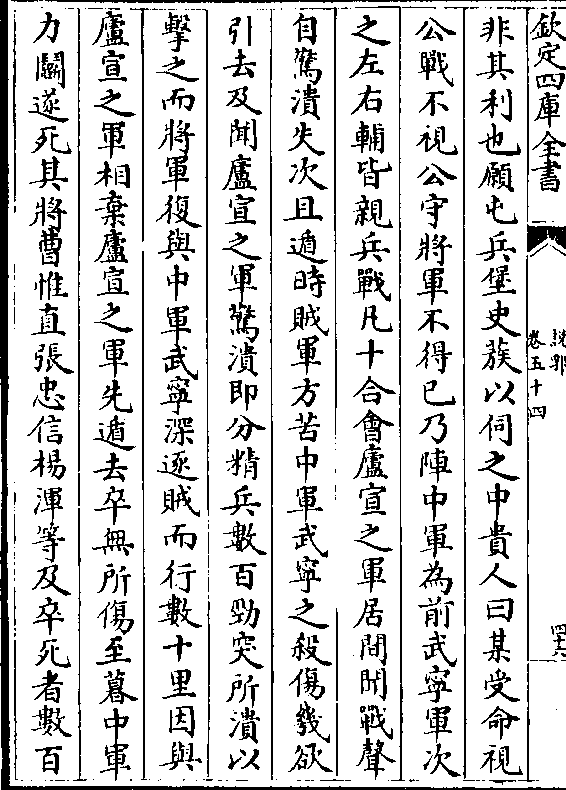 欽定四庫全書
說郛
卷五十四
四六
非其利也願屯兵堡史蔟以伺之中貴人曰某受命視
公戰不視公守將軍不得已乃陣中軍為前武寧軍次
之左右輔皆親兵戰凡十合會廬宣之軍居間聞戰聲
自驚潰失次且遁時賊軍方苦中軍武寧之殺傷幾欲
引去及聞廬宣之軍驚潰即分精兵數百勁突所潰以
擊之而將軍復與中軍武寧深逐賊而行數十里因與
廬宣之軍相棄廬宣之軍先遁去卒無所傷至暮中軍
力鬭遂死其將曹惟直張忠信楊渾等及卒死者數百